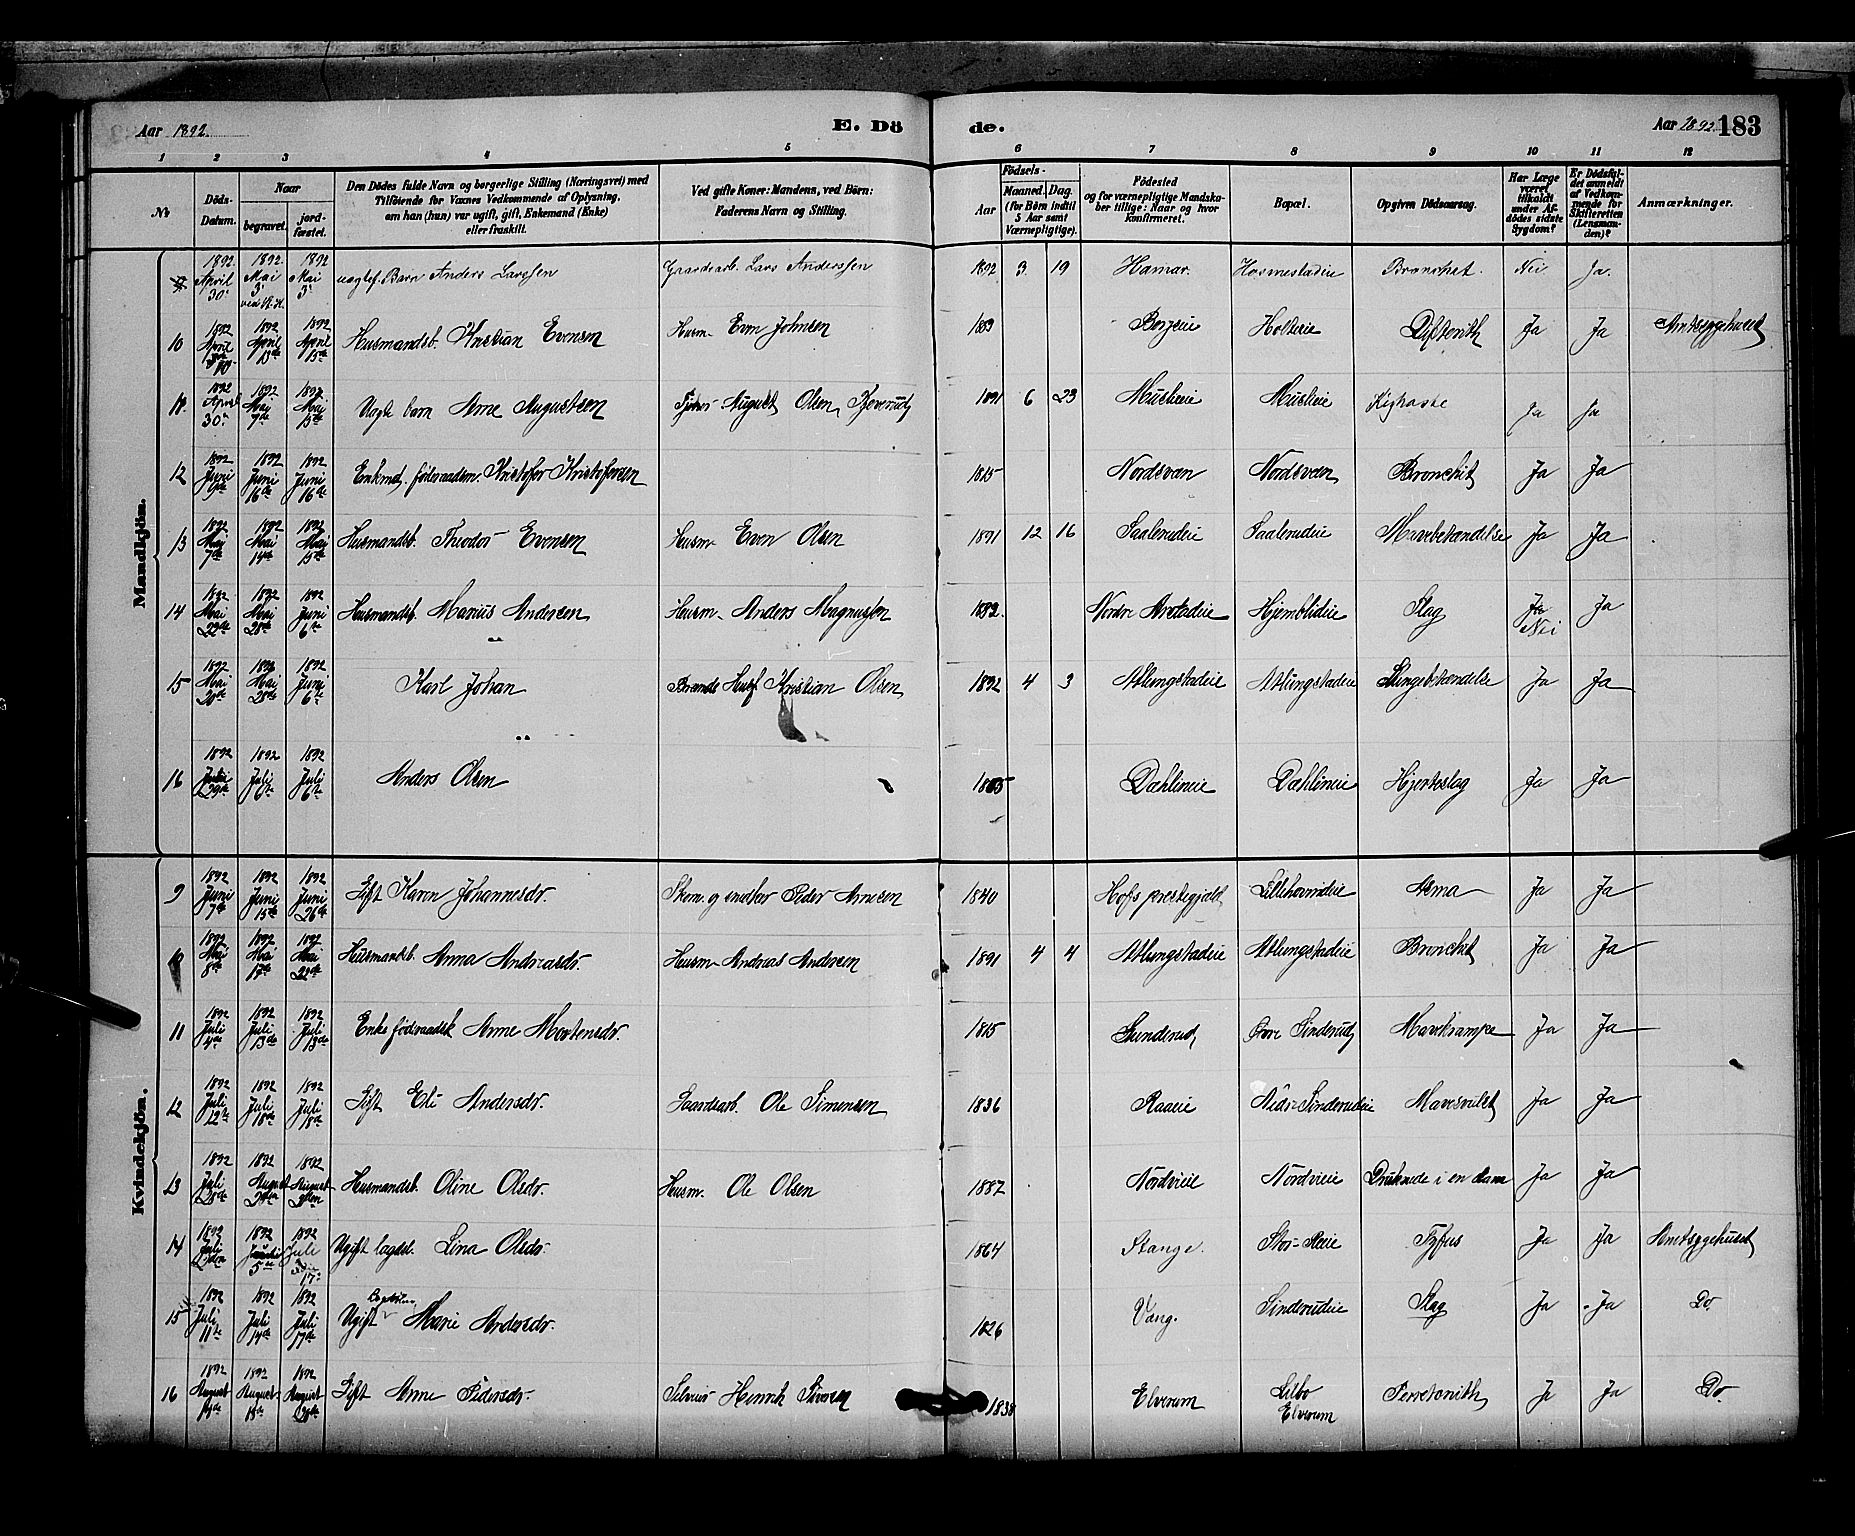 Aar 1892. E. Dö de. Aar 1892. 183
1 2 3 4 5 6 7 8 9 10 11 12
№ Döds-Datum. Naar begravet. jord-fæstet. Den Dödes fulde Navn og borgerlige Stilling (Næringsvei) med Tilföiende for Voxnes Vedkommende af Oplysning, om han (hun) var ugift, gift, Enkemand (Enke) eller fraskilt. Ved gifte Koner: Mandens, ved Börn: Faderens Navn og Stilling. Födsels- Aar Maaned. Dag. (for Börn indtil 5 Aar samt Værnepligtige). Födested og for værnepligtige Mandskaber tillige: Naar og hvor konfirmeret. Bopæl. Opgiven Dödsaarsag. Har Læge været tilkaldt under Afdödes sidste Sygdom? Er Dödsfaldet anmeldt af Vedkommende for Skifteretten (Lensmanden)? Anmærkninger.
Mandkjön.
1892 April 30. 1892. Mai 3 1892 Mai 3 uægtef. Barn Anders Larssen Gaardsarb. Lars Anderssen 1892 3. 19 Hamar. Bronchit. Nei Ja.
10 1892 April 1892 April 13de 1892 April 15de Husmandsb. Kristian Evensen Husm. Even Johnsen Holterie Ja Ja Amtssygehuset
1892 April 30. 1892 Mai 7de 1892 Mai 15de Uægte barn Arne Augustsen August Olsen 1891 6 23 Muslieie Muslieie Kighoste Ja Ja
12 1892 Juni 1892 Juni 16de 1892 Juni 16de Enkmd. föderaadsm. Kristofer Kristofersen 1815 Nordsveen Nordsveen Bronchit Ja Ja
13 1892 Mai 7de 1892 Mai 14de 1892 Mai 15de Husmandsb. Theodor Evensen Husm. Even Olsen 1891 12 16 Saalerudeie Saalerudeie Mavebetændelse Ja Ja
14 1892 Mai 22de 1892 Mai 28de 1892 Juni 6te Husmandsb. Marius Andersen Husm. Anders Magnussen 1892. Nordre Hjemblideie Slag Nei Ja
15 1892 Mai 20de 1892 Mai 28de 1892 Juni 6te Karl Johan Kristian Olsen 1892 4 3 Atlungstadeie Atlungstadeie Lungebetændelse Ja Ja
16 1892 29de 1892 Juli 6te 1892 Juli 6te Anders Olsen Dæhlineie Dæhlineie Hjerteslag Ja Ja
Kvindekjön.
9 1892 Juni 7de 1892 Juni 15de 1892 Juni 26de Gift Karen Johannesdr. Peder Arnesen 1840 Hofs prestegjæld Lillehovindeie Asma Ja Ja
10 1892 Mai 8de 1892 Mai 17de 1892 Mai 22de Husmandsb. Anna Andreasdr. Husm. Andreas Andersen 1891 4 4 Atlungstadeie Atlungstadeie Bronchit Ja Ja
11 1892 Juli 4de 1892 Juli 13de 1892 Juli 13de Enke föderaadsk Anne Mortensdr. 1815 Store Sinderud Mavekrampe Ja Ja
12 1892 Juli 12te 1892 Juli 18de 1892 Juli 18de Gift Eli Andersdr. Gaardsarb. Ole Simensen 1836 Raaeie Nedr. Sinderudeie Ja Ja
13 1892 Juli 28de 1892 August 3den 1892 August 3den Husmandsb. Oline Olsdr. Husm. Ole Olsen 1887 Nordvieie Nordvieie Druknede i en dam Ja Ja
14 1892 Juli 2den 1892 5te 1892 Juli 17. Ugift lægdsl. Lina Olsdr. 1864 Stange. Stor-Reeie Tyfus Ja Ja Amtssygehuset
15 1892 Juli 11te 1892 Juli 14de 1892 Juli 17de Ugift Marie Andersdr. 1826 Vang. Sinderudeie Slag Ja Ja Do.
16 1892 August 14de 1892 August 18de 1892 August Gift Anne Pedersdr. Selveier Henrik Siversen 1838 Elverum Lilbo Elverum Ja Ja Do.